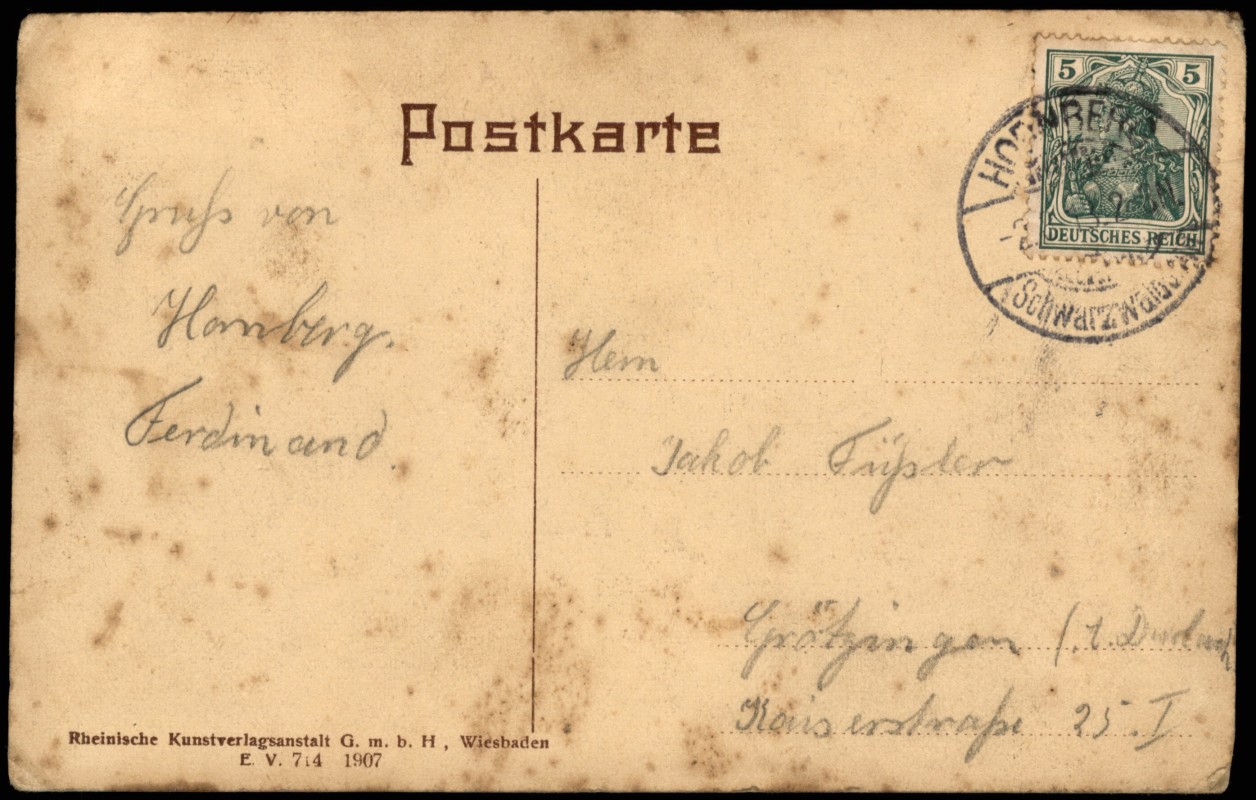 Postkarte
5 5
DEUTSCHES REICH
HORNBERG
(SCHWARZW
Gruß von
Hornberg.
Ferdinand.
Herrn
Jakob
Grötzingen
Kaiserstraße 25. I
Rheinische Kunstverlagsanstalt G. m. b. H , Wiesbaden
E. V. 714 1907